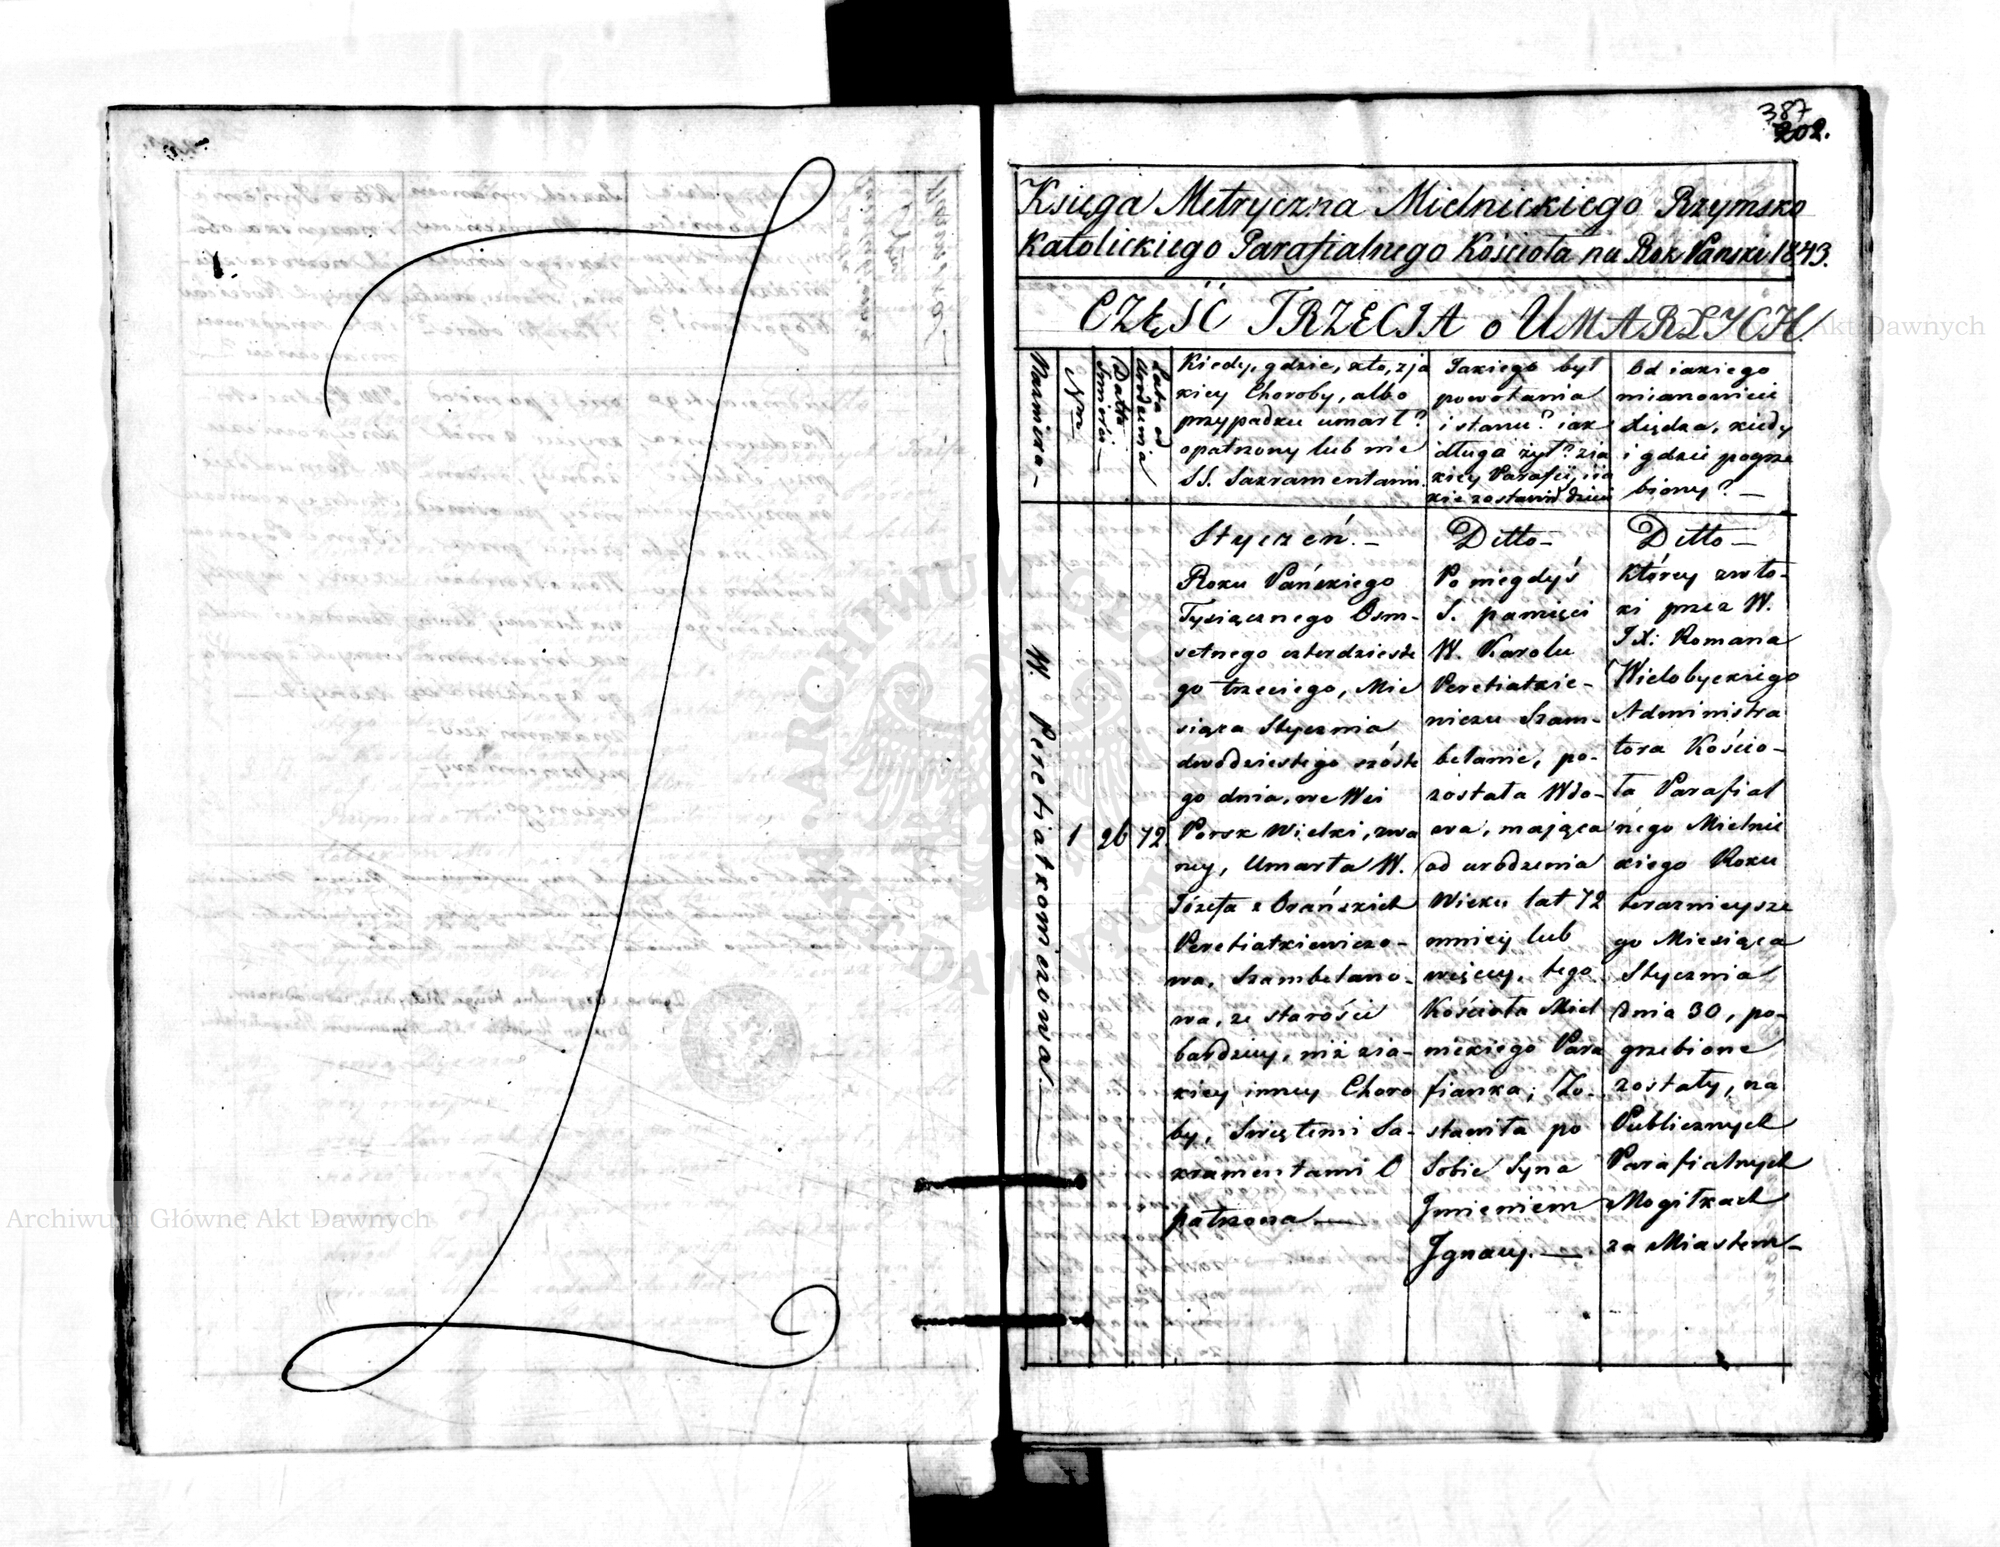 387
202.
Księga Metryczna Mielnickiego Rzymsko
Katolickiego Parafialnego Kościoła na Rok Pański 1843.
CZĘŚĆ TRZECIA o UMARŁYCH.
Nazwiska
Nro
Datta Śmierci
Lata od Urodzenia
Kiedy, gdzie, kto, z ja
kiey Choroby, albo
przypadku umarł?
opatrzony lub nie
SS. Sakramentami.
Jakiego był
powołania
i stanu? iak
długo żył? z ia
kiey Parafii, i ia
kie zostawił dzieci
Od iakiego
mianowicie
Xiędza, kiedy
i gdzie pogrze
biony? —
W. Peretiatkowiczowa
1
26
72
Styczeń. —
Roku Pańskiego
Tysiącznego Osm-
setnego czterdzieste
go trzeciego, Mie
siąca Stycznia
dwódziestego szóste
go dnia, we Wsi
Porsk Wielki, zwa
ney, Umarła W.
Józefa z Orańskich
Peretiatkiewiczo-
wa, Szambelano-
wa, ze starości
bardziey, niż z ia-
kiey inney Choro
by, Swiętemi Sa-
kramentami O
patrzona —
Ditto —
Po niegdyś
S. pamięci
W. Karolu
Peretiatkie-
wiczu Szam-
belanie, po-
została Wdo-
wa, mająca
od urodzenia
Wieku lat 72
mniey lub
więcey, tego
Kościoła Miel
nickiego Para
fianka; Zo-
stawiła po
Sobie Syna
Imieniem
Ignacy. —
Ditto —
Którey zwło-
ki przez W.
JX: Romana
Wielobyckiego
Administra
tora Kościo-
ła Parafial
nego Mielnic
kiego Roku
terazniejsze
go Miesiąca
Stycznia
dnia 30, po-
grzebione
zostały, na
Publicznych
Parafialnych
Mogiłkach
za Miastem —
Archiwum Główne Akt Dawnych
Akt Dawnych